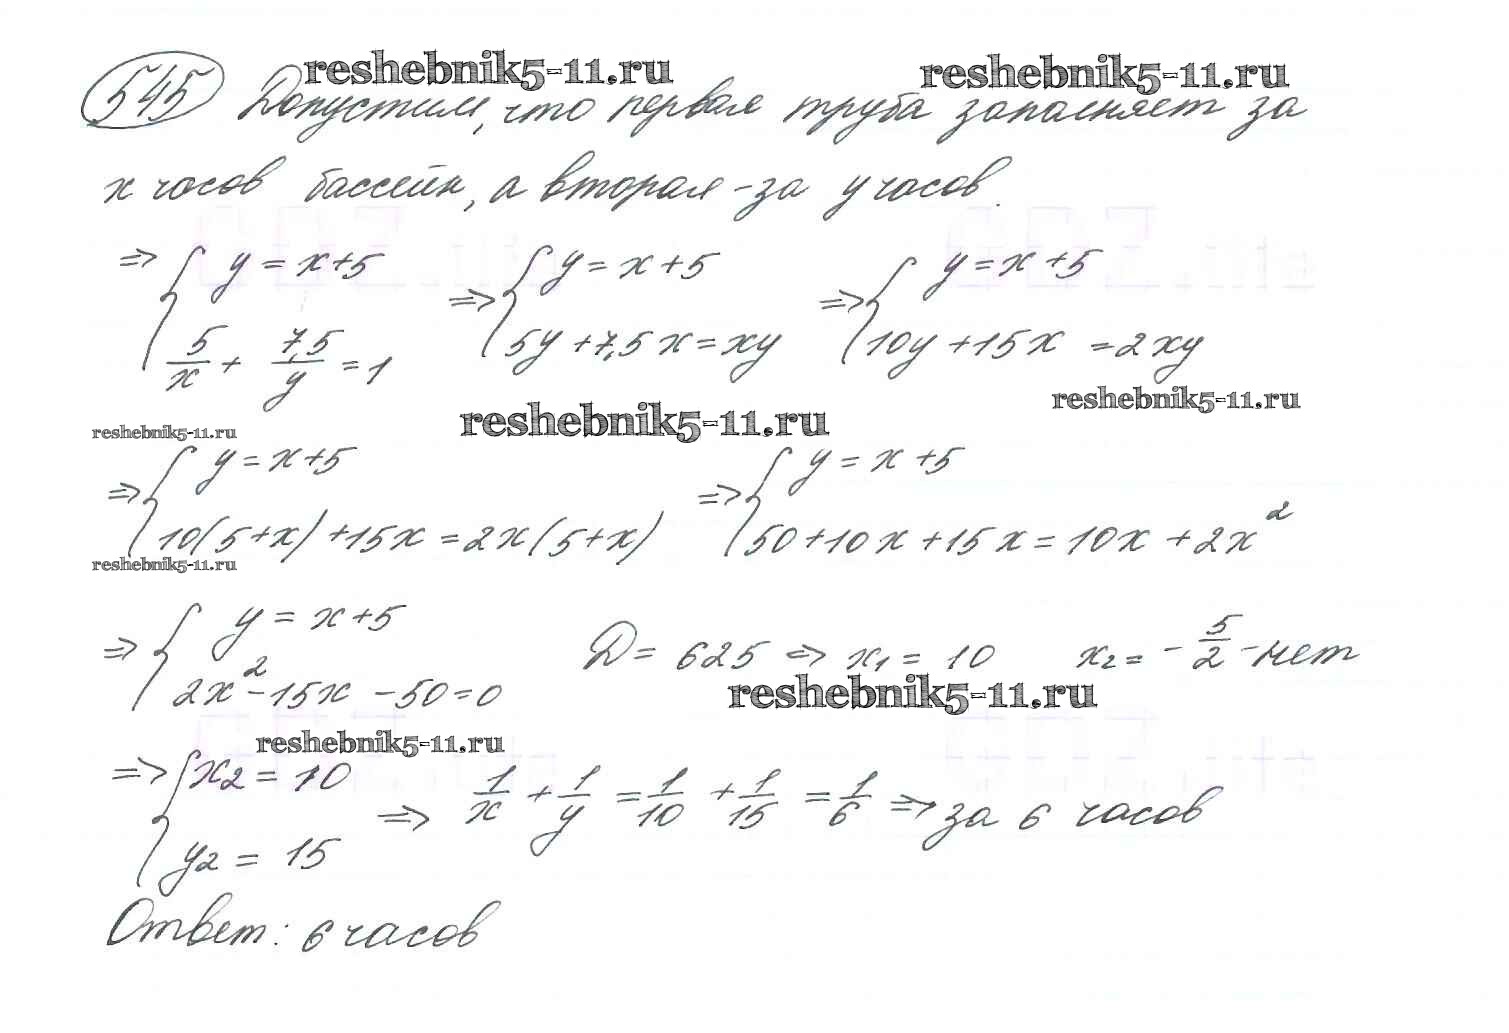 reshebnik5-11.ru reshebnik5-11.ru
545 Допустим, что первая труба заполняет за
x часов бассейн, а вторая - за y часов.
=> { y = x+5 => { y = x+5 => { y = x+5
5/x + 7,5/y = 1 5y + 7,5x = xy 10y + 15x = 2xy
reshebnik5-11.ru
reshebnik5-11.ru reshebnik5-11.ru
=> { y = x+5 => { y = x+5
10(5+x) + 15x = 2x(5+x) 50+10x+15x = 10x + 2x²
reshebnik5-11.ru
=> { y = x+5
2x² - 15x - 50 = 0 D = 625 => x₁ = 10 x₂ = - 5/2 - нет
reshebnik5-11.ru
reshebnik5-11.ru
=> { x₂ = 10
y₂ = 15 => 1/x + 1/y = 1/10 + 1/15 = 1/6 => за 6 часов
Ответ: 6 часов